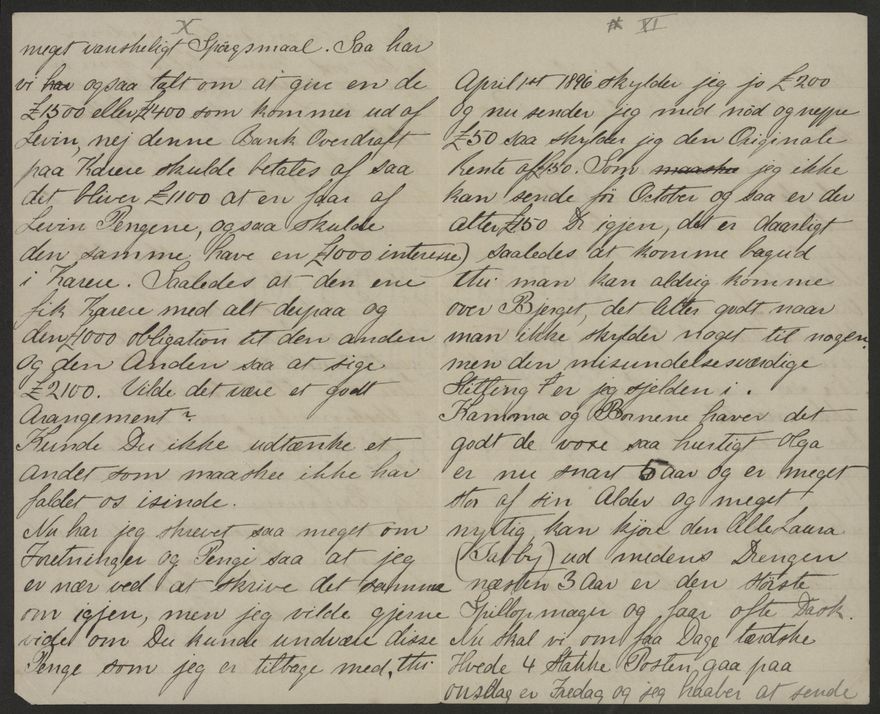 X
meget vanskeligt Spörgsmaal. Saa har
vi har ogsaa talt om at give en de
£1500 eller £1400 som kommer ud af
Levin, nej denne Bank Overdraft
paa Karere skulde betales af saa
det bliver £1100 at en faar af
Levin Pengene, ogsaa skulde
den samme have en £1000 interesse
i Karere. Saaledes at den ene
fik Karere med alt derpaa og
den £1000 obligation til den anden
og den Anden saa at sige
£2100. Vilde det være et godt
Arangement?
Kunde Du ikke udtænke et
andet som maaskee ikke har
faldet os isinde.
Nu har jeg skrevet saa meget om
Foretninger og Penge saa at jeg
er nær ved at skrive det samme
om igjen, men jeg vilde gjerne
vide om Du kunde undvære disse
Penge som jeg er tilbage med, thi
XI
April 1st 1896 skylder jeg jo £200
og nu sender jeg med nöd og neppe
£50 saa skylder jeg den Originale
Rente af £150. Som maaskee jeg ikke
kan sende för October og saa er der
atter £150 Dr igjen, det er daarligt
saaledes at komme bagud
thi man kan aldrig komme
over Bjerget, det latter godt naar
man ikke skylder noget til nogen.
men den misundelsesværdige
Stilling er jeg sjelden i.
Kamma og Börnene haver det
godt de voxe saa hurtigt Olga
er nu snart 5 aar og er meget
stor af sin Alder og meget
nyttig, kan kjöre den lille Laura
(Tabby) ud medens Drengen
næsten 3 Aar er den störste
Spillopmager og faar ofte Dask.
Nu skal vi om faa Dage tærdske
Hvede 4 Stakke Posten gaa paa
onsdag er Fredag og jeg haaber at sende